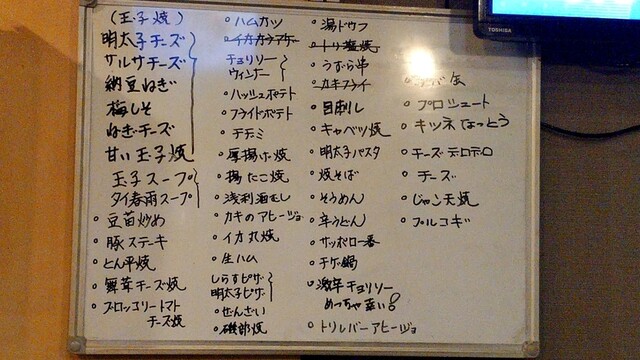 (玉子焼)
明太子チーズ
サルサチーズ
納豆ねぎ
梅しそ
ねぎチーズ
甘い玉子焼
玉子スープ
タイ春雨スープ
豆苗炒め
豚ステーキ
とん平焼
舞茸チーズ焼
ブロッコリートマト
チーズ焼
ハムカツ
イカカラアゲ
チョリソー
ウィンナー
ハッシュポテト
フライドポテト
チヂミ
厚揚げ焼
揚たこ焼
浅利酒むし
カキのアヒージョ
イカ丸焼
生ハム
しらすピザ
明太子ピザ
ぜんざい
磯部焼
湯ドウフ
トリ塩焼
うずら串
カキフライ
目刺し
キャベツ焼
明太子パスタ
焼そば
そうめん
辛うどん
サッポロ一番
チゲ鍋
激辛チョリソー
めっちゃ辛い!
トリレバーアヒージョ
缶
プロシュート
キツネなっとう
チーズデロデロ
チーズ
じゃこ天焼
プルコギ
TOSHIBA